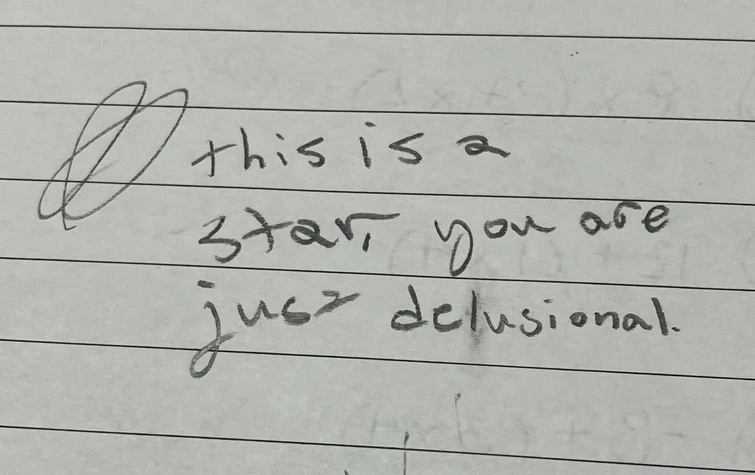 this is a
star, you are
just delusional.